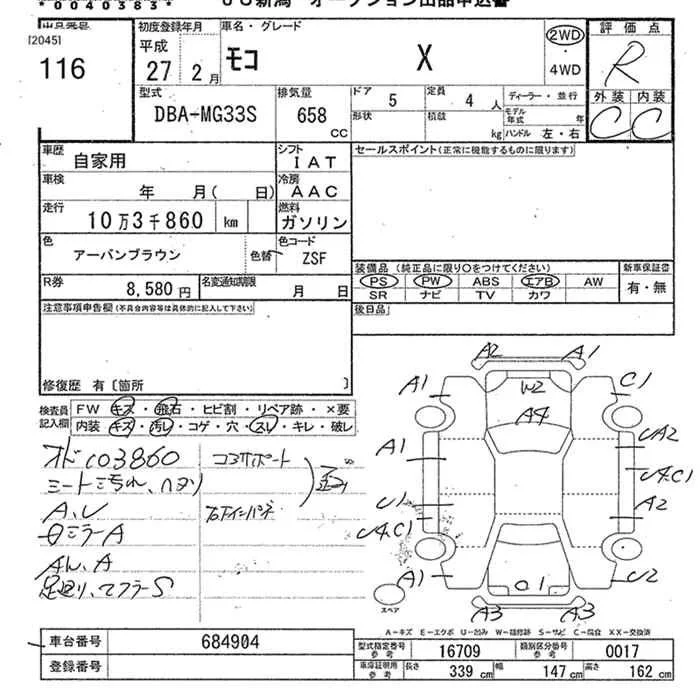 *0040383*
JU新潟 オークション出品申込書
出品番号
[2045]
116
初度登録年月
平成
27 年 2 月
車名・グレード
モコ X
2WD
・
4WD
評価点
R
外装 内装
C C
型式
DBA-MG33S
排気量
658
CC
ドア
5
定員
4 人
ディーラー・並行
形状
積載
kg
モデル年式 年
ハンドル 左・右
車歴
自家用
シフト
IAT
セールスポイント(正常に機能するものに限ります)
車検
年 月( 日)
冷房
AAC
走行
10万3千860 km
燃料
ガソリン
色
アーバンブラウン
色替
色コード
ZSF
装備品 (純正品に限り○をつけてください)
新車保証書
PS PW ABS エアB AW
有・無
SR ナビ TV カワ
R券
8,580 円
名変通知期限
月 日
後日品
注意事項申告欄(不具合内容等は具体的に記入して下さい)
修復歴 有〔箇所 〕
検査員
記入欄
FW キズ・飛石・ヒビ割・リペア跡・×要
内装 キズ・汚レ・コゲ・穴・スレ・キレ・破レ
103860
コアサポート
シート汚れ、ヘタリ
A、U
右インパネ
ミラーA
A
足廻り、マフラーS
A2 A1
A1 W2 C1
A4
A1 UA2
U4.C1
U1 A2
U4.C1
A1 C1 U2
スペア
A3 A3
A-キズ E-エクボ U-凹み W-補修跡 S-サビ C-腐食 XX-交換済
車台番号
684904
型式指定番号
参考
16709
類別区分番号
参考
0017
登録番号
車庫証明用
参考
長さ 339 cm
幅 147 cm
高さ 162 cm